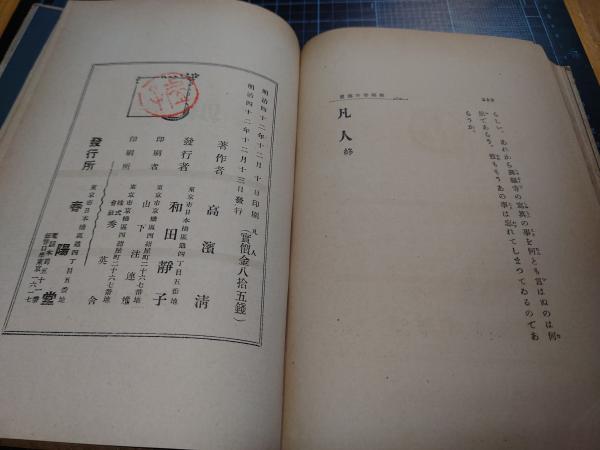 らしい。あれから眞福寺の寫眞の事を何とも言はぬのは何
故であらう。誰ももうあの事は忘れてしまつてゐるのであ
らうか。
凡人 終
明治四十二年十二月十日印刷
明治四十二年十二月十三日發行
凡人
(實價金八拾五錢)
著作者 高濱清
東京市日本橋區通四丁目五番地
發行者 和田靜子
東京市京橋區西紺屋町二十六七番地
印刷者 山下
東京市京橋區西紺屋町二十六七番地
印刷所 株式會社 秀英舍
東京市日本橋區通四丁目五番地
發行所 春陽堂
電話本局五十一番